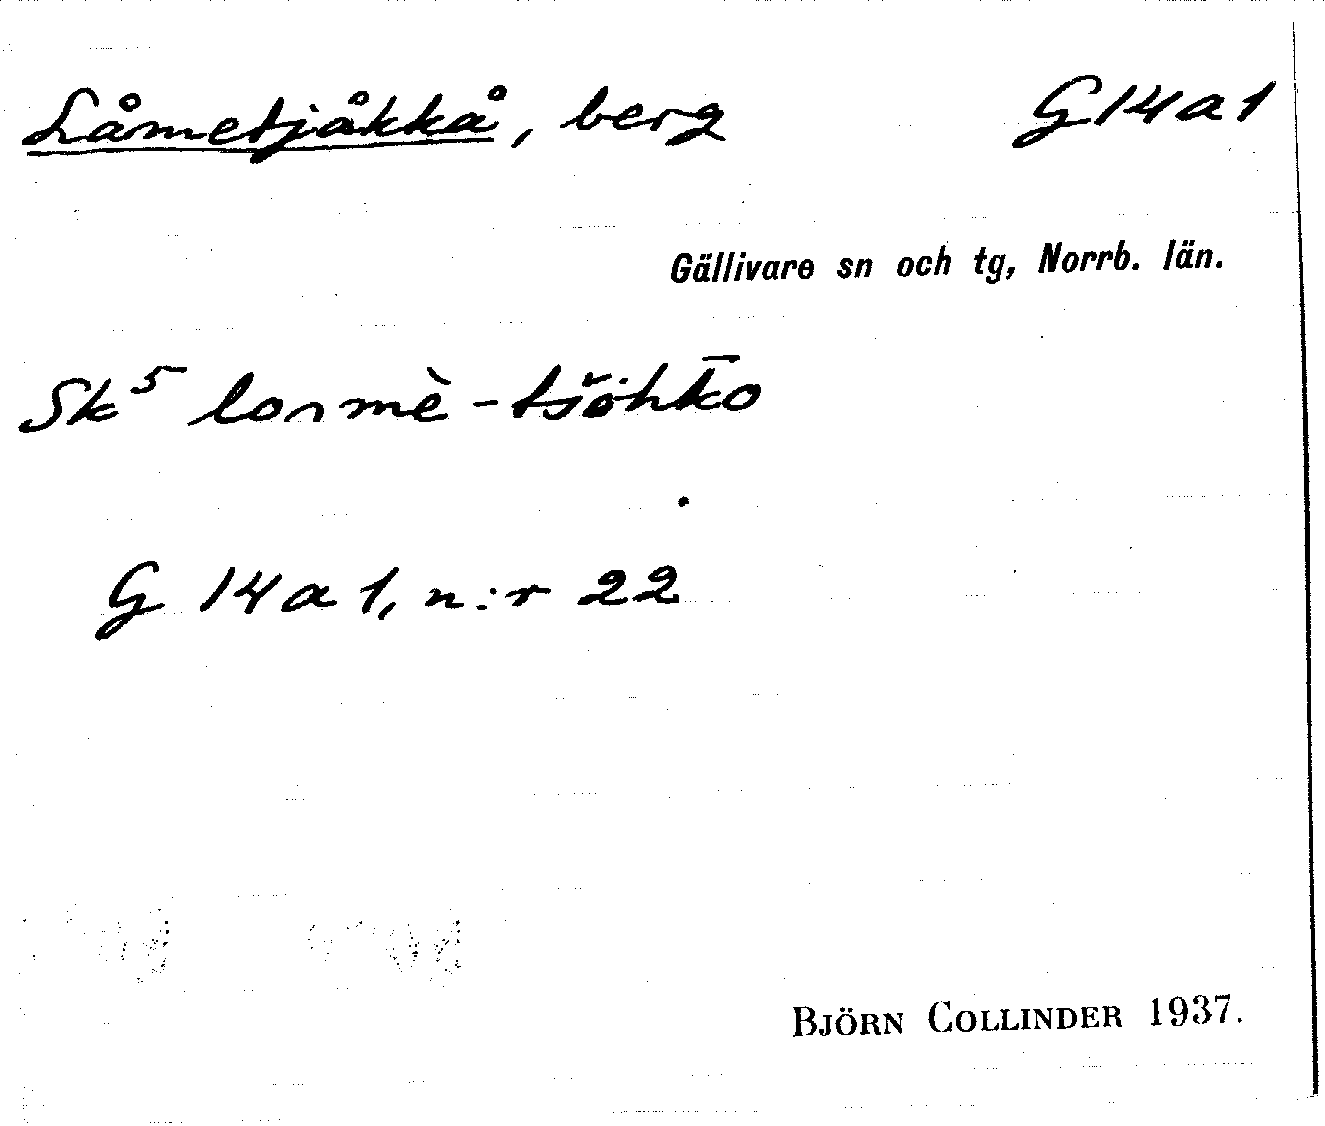 Låmetjåkkå, berg G14a1
Gällivare sn och tg, Norrb. län.
Sk⁵ lonmè-tšöhk̄o
G 14a1, n:r 22
BJÖRN COLLINDER 1937.